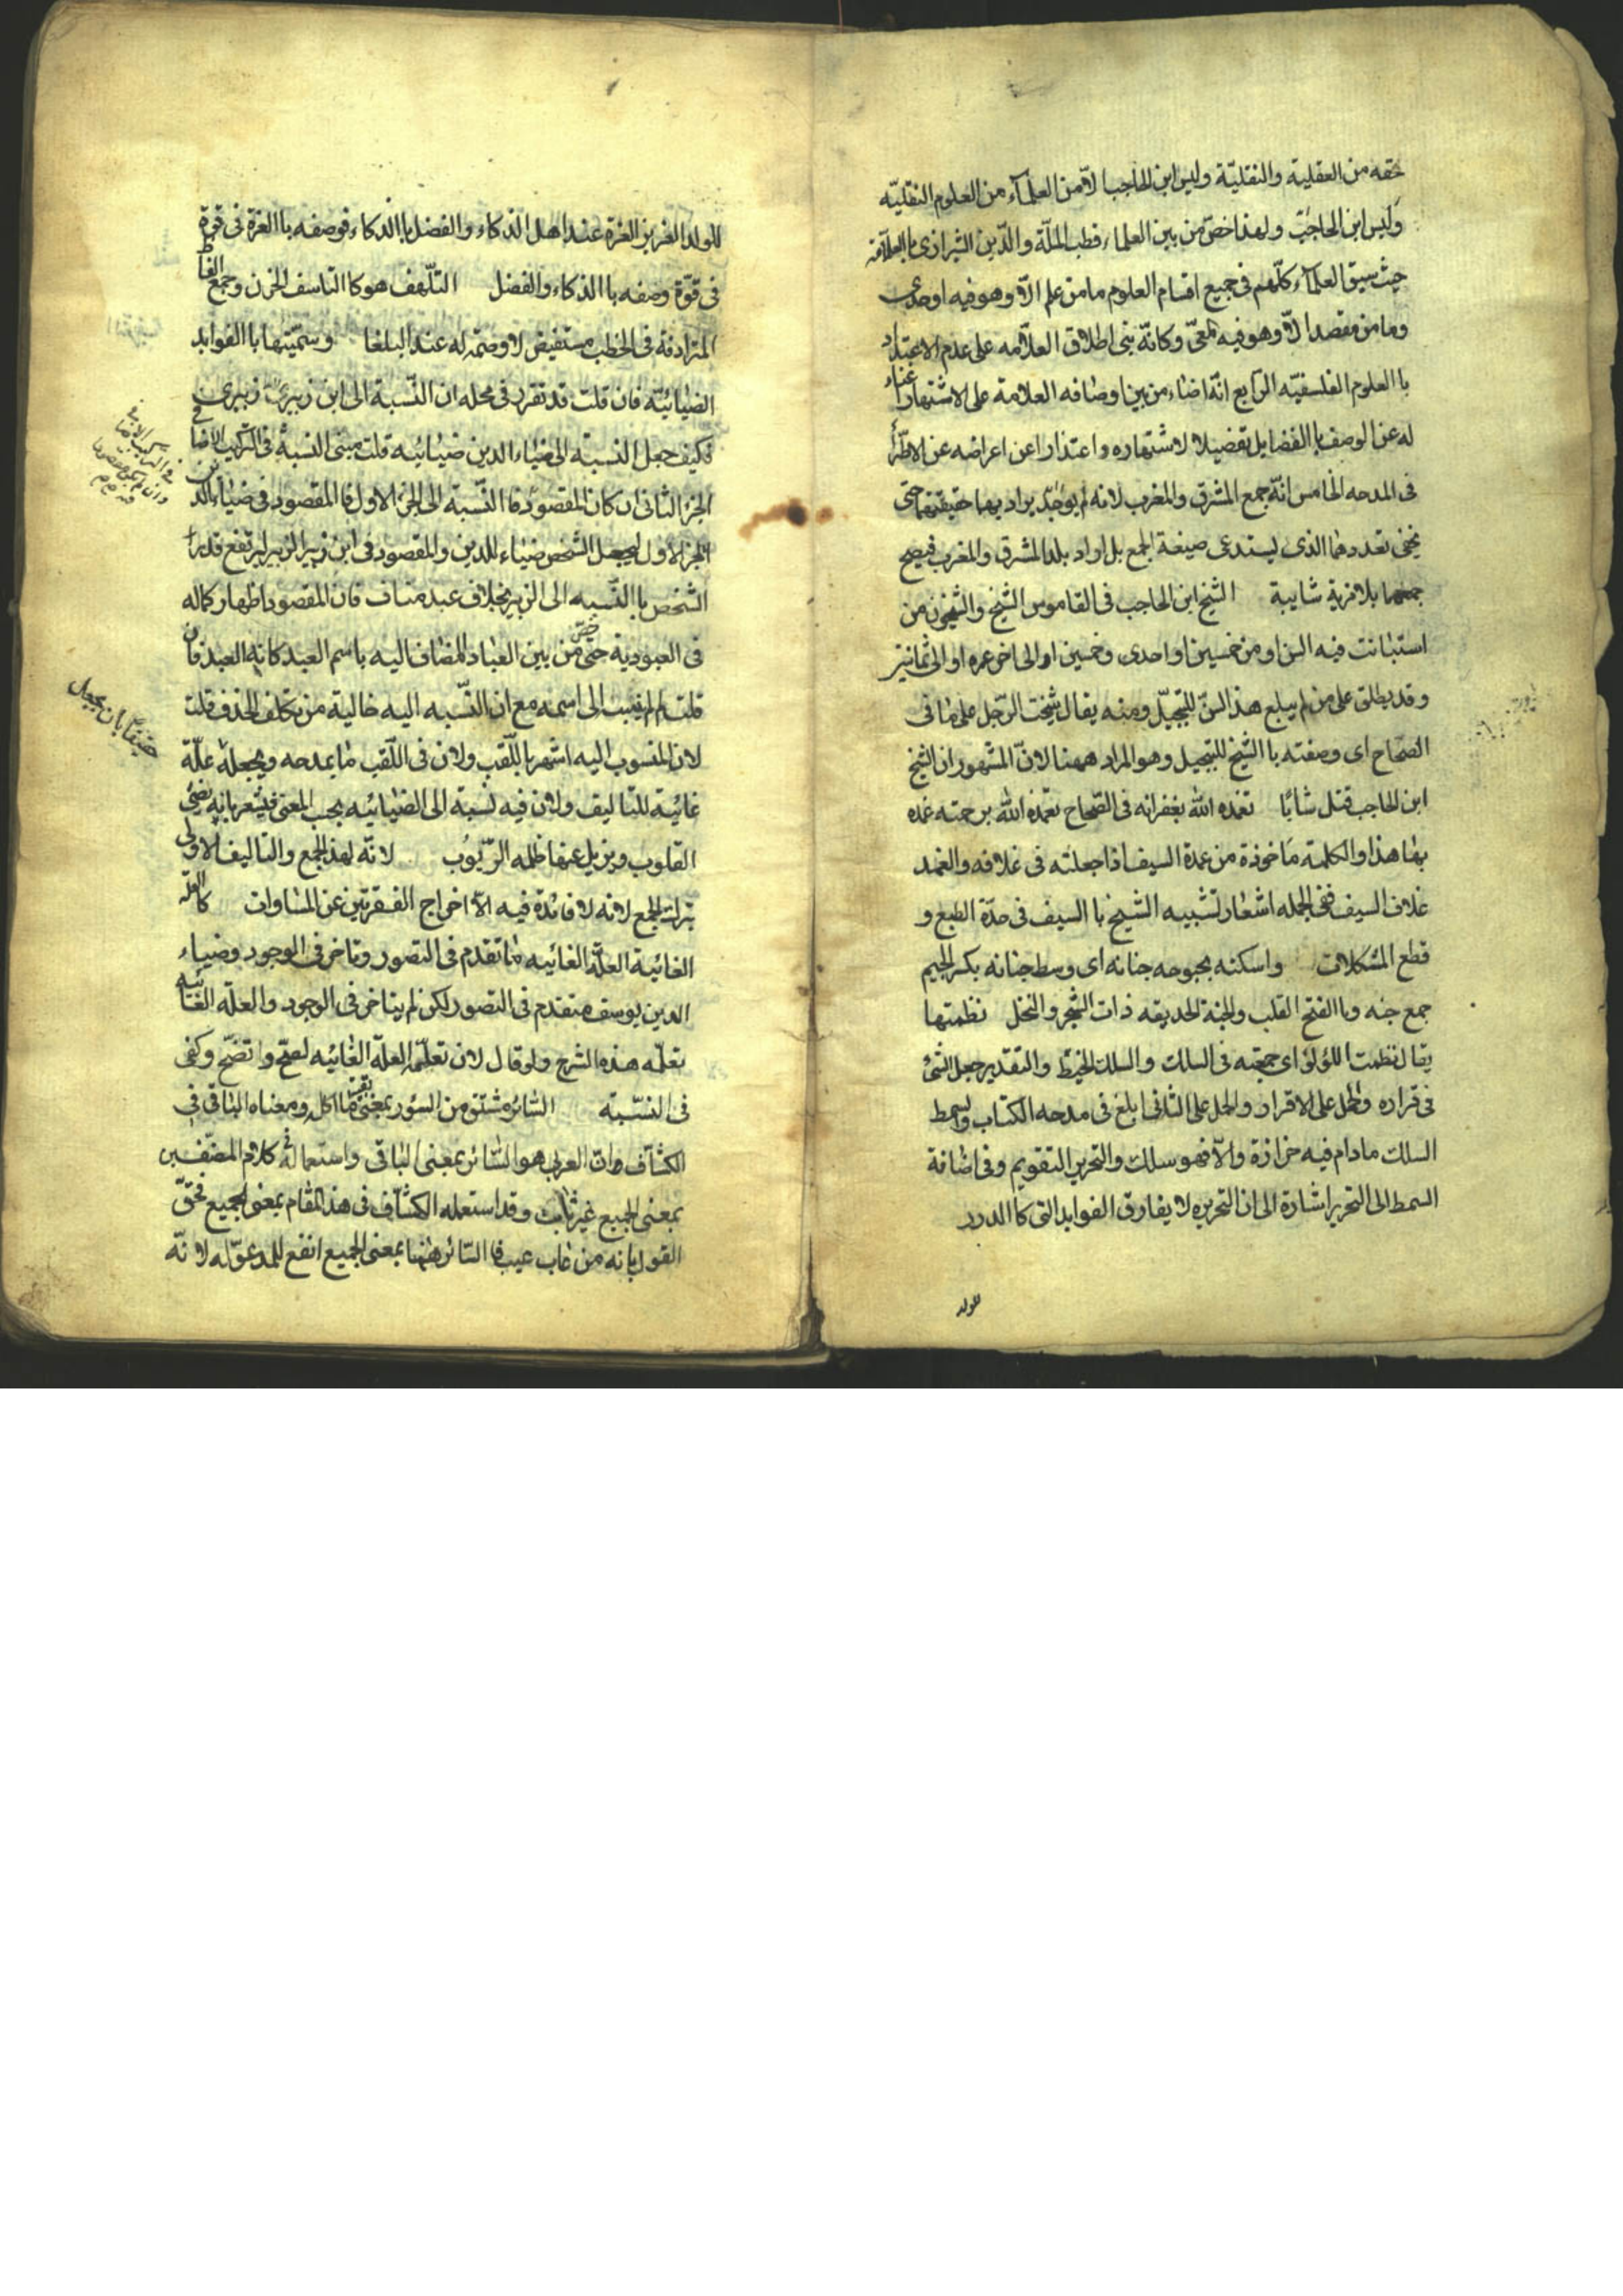 حقه من العقلية والنقليّة وليس ابن الحاجب الّا من العلمآء من العلوم النقليّه
وليس ابن الحاجب ولهذا خصّ من بين العلماء قطب الملّة والدّين الشيرازى باالعلاّمه
حيث سبق العلمآء كلّهم فى جميع اقسام العلوم ما من علم الاّ وهو فيه اوحدى
وما من مقصد الاّ وهو فيه المعى وكانّه بنى اطلاق العلاّمه على عدم الاعتداد
باالعلوم الفلسفيّه الرّابع انّه اضاء من بين اوصافه العلامة على الاشتهار
له عن الوصف باالفضايل تفضيلا لاشتهاره واعتذارا عن اعراضه عن الاطرآ
فى المدحه الخامس انّه جمع المشرق والمغرب لانه لم يوجد يراد بهما حقيقتهما حتى
يخفى تعددهما الذى ليستدعى صيغة الجمع بل اراد بلد المشرق والمغرب فيصح
جمعهما بلا مزية شايبة الشيخ ابن الحاجب فى القاموس الشيخ والشيخون من
استبانت فيه السن او من خمسين او احدى وخمسين او الى اخر عمره او الى ثمانين
وقد يطلق على من لم يبلغ هذا السنّ للتبجيل ومنه يقال شيخت الرّجل على ما فى
الصحاح اى وصفته باالشيخ للتبجيل وهو المراد ههنا لانّ المشهور ان الشيخ
ابن الحاجب قتل شابًا تغمده الله بغفرانه فى الصّحاح تغمّده الله برحمته غمده
بها هذا والكلمة ماخوذة من غمدة السيف اذا جعلته فى غلافه والغمد
غلاف السيف ففى الجمله اشعار لتشبيه الشيخ باالسيف فى حدّة الطبع و
قطع المشكلات واسكنه بحبوحه جنانه اى وسط جنانه بكسر الجيم
جمع جنه وباالفتح القلب والجنة الحديقه ذات الشجر والنخل نظمتها
يقال نظمت اللؤلؤ اى جمعته فى السلك والسلك الخيط والتقدير جعل الشئ
فى قراره والحمل على الاقرار والحمل على الثانى ابلغ فى مدحه الكتاب والسمط
السلك مادام فيه خرازة والاّ فهو سلك والتحرير التقويم وفى اضافة
السمط الى التحرير اشارة الى ان التحريره لا يفارق الفوايد التى كاالدرر
للولد
للولد العزيز العزة عند اهل الذكاء والفضل باالذكاء فوصفه باالعزة فى قوة
فى قوّة وصفه باالذكاء والفضل التلّهف هو كاالتاسف الحزن وجمع الفاظ
المترادفة فى الخطب مستفيض لا وصمة له عند البلغا وسمّيتها باالفوايد
الضيائيّه فان قلت قد تقرر فى محله ان النّسبة الى ابن زبيرى زبيرى
فكيف جعل النسبة الى ضياء الدين ضيائيه قلت مبنى النسبة فى التركيب الاضافى
الجزء الثانى ان كان المقصود فاالنّسبة الى الجزء الاول فاالمقصود فى ضياء الدين
الجزء الاول ليجعل الشخص ضياء للدين والمقصود فى ابن زبير الزبير ليرتفع قدر
الشخص باالنّسبه الى الزبير بخلاف عبد مناف فان المقصود اظهار كماله
فى العبودية حتى خصّ من بين العباد المضاف اليه باسم العبد كانه العبد فان
قلت لم لم ينسب الى اسمه مع ان النّسبه اليه خالية من تكلف الحذف قلت
لان المنسوب اليه اشتهر باللّقب ولان فى اللّقب ما يمدحه ويجعله علّة
غائية للتاليف ولان فيه نسبة الى الضيائيه بحسب المعنى فيشعر بانه يضئ
القلوب ويزيل عنها ظلمه الرّيوب لانّه لهذا الجمع والتاليف الاولى
ترك الجمع لانه لا فائدة فيه الاّ اخراج الفقرتين عن المساوات كاالعلة
الغائية العلة الغائيه ما تقدم فى التصور وتاخر فى الوجود وضياء
الدين يوسف متقدم فى التصور لكن لم يتاخر فى الوجود والعلة الغائيه
تعلّمه هذه الشرح ولو قال لان تعلّمه العلة الغائيه لصحّ واتضح وكفى
فى النسّبة السّائر مشتق من السور بمعنى بقية ما اكل ومعناه الباقى فى
الكشّاف وان العرب هو السّائر بمعنى الباقى واستعماله فى كلام المصنّفين
بمعنى الجميع غير ثابت وقد استعمله الكشّاف فى هذا المقام بمعنى الجميع فحقّ
القول بانه من غاب عيب فاالسّائر ههنا بمعنى الجميع انفع للمدعوّ له لانّه
حقيقًا بان يجعل